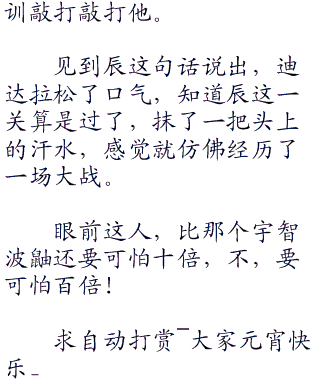 训敲打敲打他。
见到辰这句话说出，迪
达拉松了口气，知道辰这一
关算是过了，抹了一把头上
的汗水，感觉就仿佛经历了
一场大战。
眼前这人，比那个宇智
波鼬还要可怕十倍，不，要
可怕百倍！
求自动打赏~大家元宵快
乐_